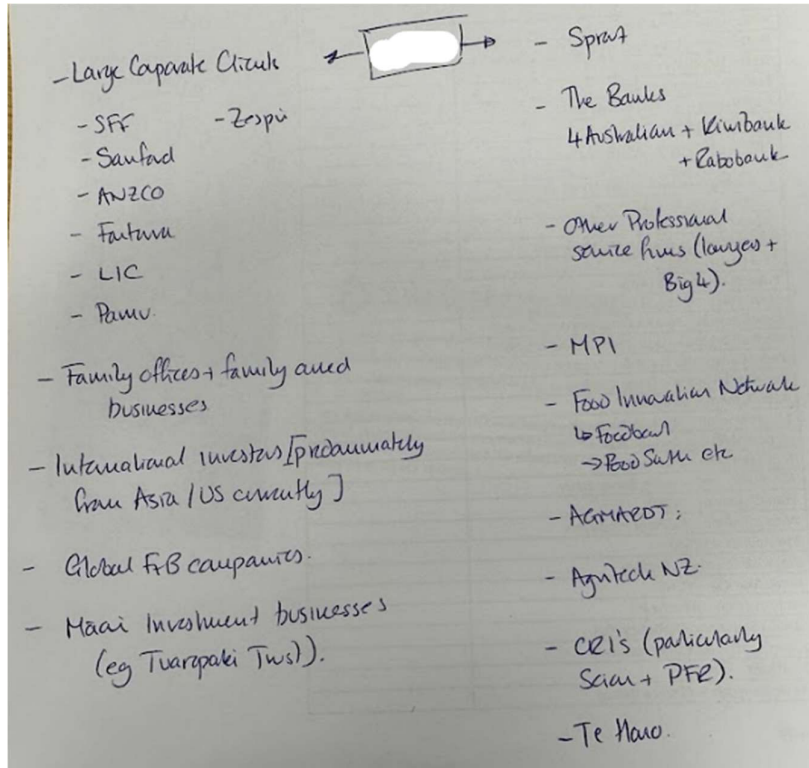 - Large Corporate Clients
- SFF - Zespri
- Sanford
- ANZCO
- Fonterra
- LIC
- Pamu
- Family offices + family owned
businesses
- International investors [predominately
from Asia / US currently]
- Global F+B companies.
- Māori Investment businesses
(eg Tuaropaki Trust)).
- Sprout
- The Banks
4 Australian + Kiwibank
+ Rabobank
- Other Professional
service firms (lawyers +
Big 4).
- MPI
- Food Innovation Network
↳ Foodbowl
→ Food South etc
- AGMARDT;
- Agritech NZ.
- CRI's (particularly
Scion + PFR).
- Te Hono.